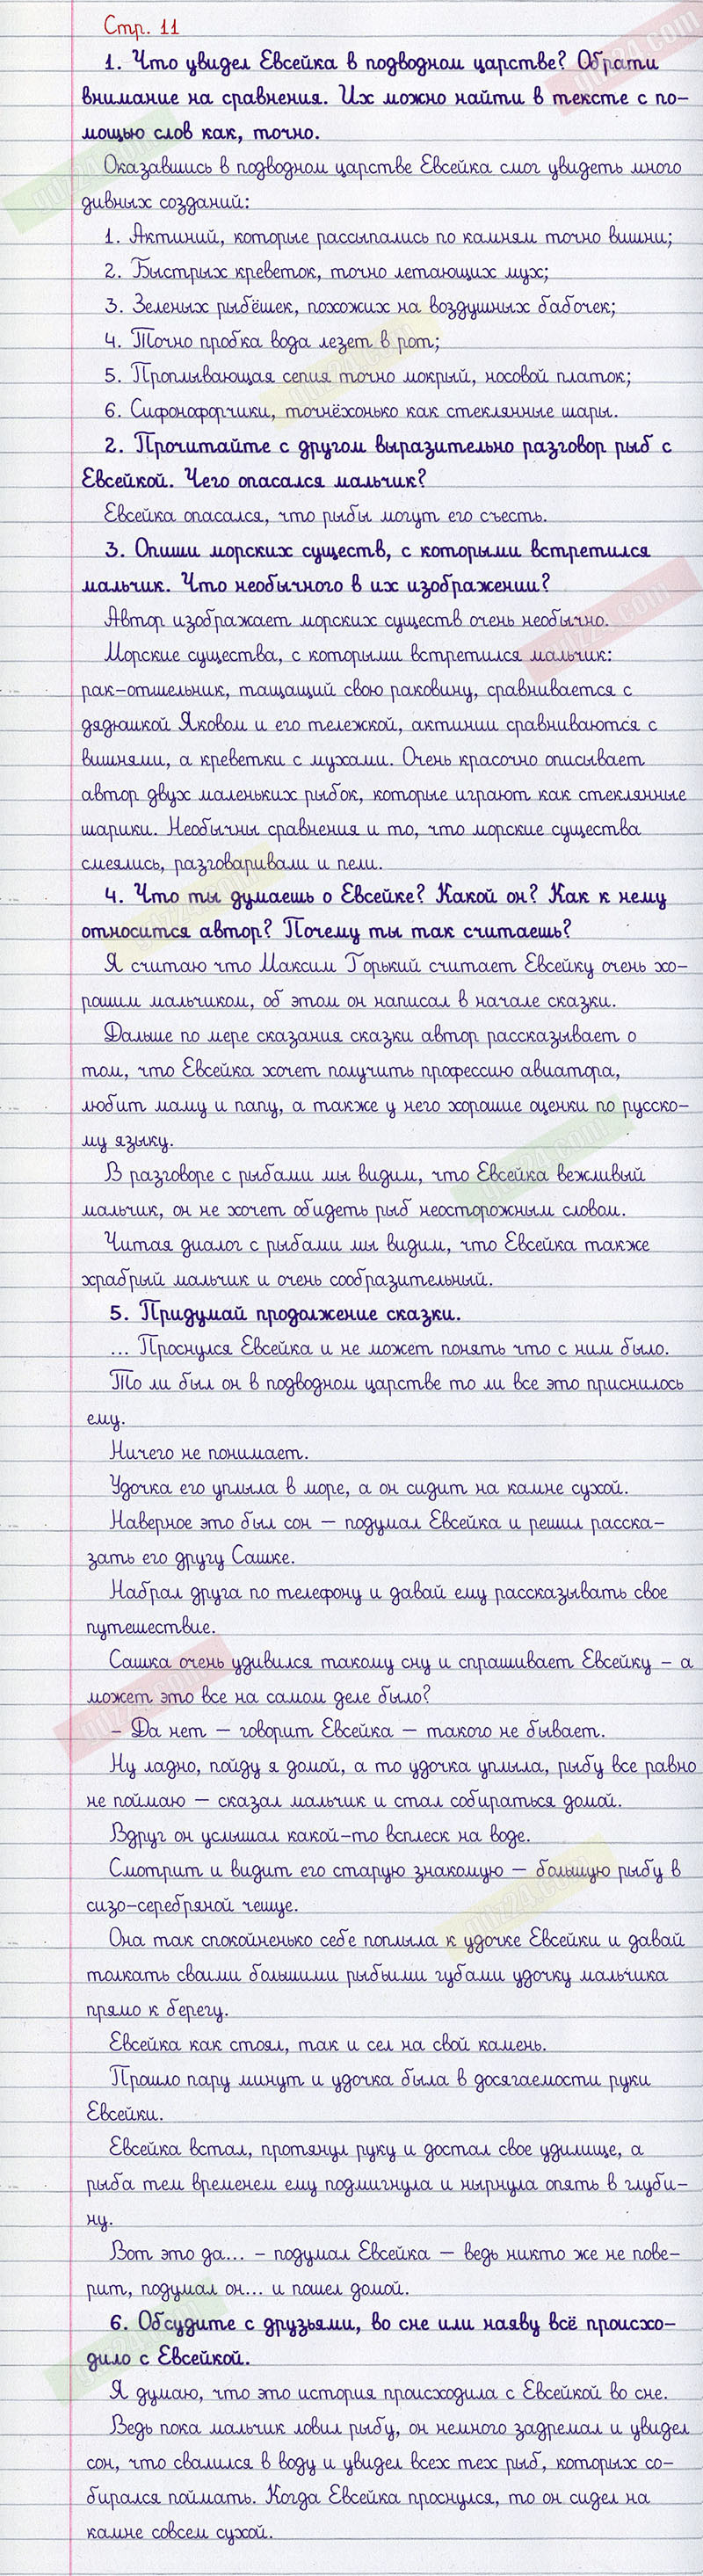 Стр. 11
1. Что увидел Евсейка в подводном царстве? Обрати
внимание на сравнения. Их можно найти в тексте с по-
мощью слов как, точно.
Оказавшись в подводном царстве Евсейка смог увидеть много
дивных созданий:
1. Актиний, которые рассыпались по камням точно вишни;
2. Быстрых креветок, точно летающих мух;
3. Зеленых рыбёшек, похожих на воздушных бабочек;
4. Точно пробка вода лезет в рот;
5. Проплывающая сепия точно мокрый, носовой платок;
6. Сифонофорчики, точнёхонько как стеклянные шары.
2. Прочитайте с другом выразительно разговор рыб с
Евсейкой. Чего опасался мальчик?
Евсейка опасался, что рыбы могут его съесть.
3. Опиши морских существ, с которыми встретился
мальчик. Что необычного в их изображении?
Автор изображает морских существ очень необычно.
Морские существа, с которыми встретился мальчик:
рак-отшельник, тащащий свою раковину, сравнивается с
дядюшкой Яковом и его тележкой, актинии сравниваются с
вишнями, а креветки с мухами. Очень красочно описывает
автор двух маленьких рыбок, которые играют как стеклянные
шарики. Необычны сравнения и то, что морские существа
смеялись, разговаривали и пели.
4. Что ты думаешь о Евсейке? Какой он? Как к нему
относится автор? Почему ты так считаешь?
Я считаю что Максим Горький считает Евсейку очень хо-
рошим мальчиком, об этом он написал в начале сказки.
Дальше по мере сказания сказки автор рассказывает о
том, что Евсейка хочет получить профессию авиатора,
любит маму и папу, а также у него хорошие оценки по русско-
му языку.
В разговоре с рыбами мы видим, что Евсейка вежливый
мальчик, он не хочет обидеть рыб неосторожным словом.
Читая диалог с рыбами мы видим, что Евсейка также
храбрый мальчик и очень сообразительный.
5. Придумай продолжение сказки.
... Проснулся Евсейка и не может понять что с ним было.
То ли был он в подводном царстве то ли все это приснилось
ему.
Ничего не понимает.
Удочка его уплыла в море, а он сидит на камне сухой.
Наверное это был сон – подумал Евсейка и решил расска-
зать его другу Сашке.
Набрал друга по телефону и давай ему рассказывать свое
путешествие.
Сашка очень удивился такому сну и спрашивает Евсейку - а
может это все на самом деле было?
- Да нет – говорит Евсейка – такого не бывает.
Ну ладно, пойду я домой, а то удочка уплыла, рыбу все равно
не поймаю – сказал мальчик и стал собираться домой.
Вдруг он услышал какой-то всплеск на воде.
Смотрит и видит его старую знакомую – большую рыбу в
сизо-серебряной чешуе.
Она так спокойненько себе поплыла к удочке Евсейки и давай
толкать своими большими рыбьими губами удочку мальчика
прямо к берегу.
Евсейка как стоял, так и сел на свой камень.
Прошло пару минут и удочка была в досягаемости руки
Евсейки.
Евсейка встал, протянул руку и достал свое удилище, а
рыба тем временем ему подмигнула и нырнула опять в глуби-
ну.
Вот это да... - подумал Евсейка – ведь никто же не пове-
рит, подумал он... и пошел домой.
6. Обсудите с друзьями, во сне или наяву всё происхо-
дило с Евсейкой.
Я думаю, что это история происходила с Евсейкой во сне.
Ведь пока мальчик ловил рыбу, он немного задремал и увидел
сон, что свалился в воду и увидел всех тех рыб, которых со-
бирался поймать. Когда Евсейка проснулся, то он сидел на
камне совсем сухой.